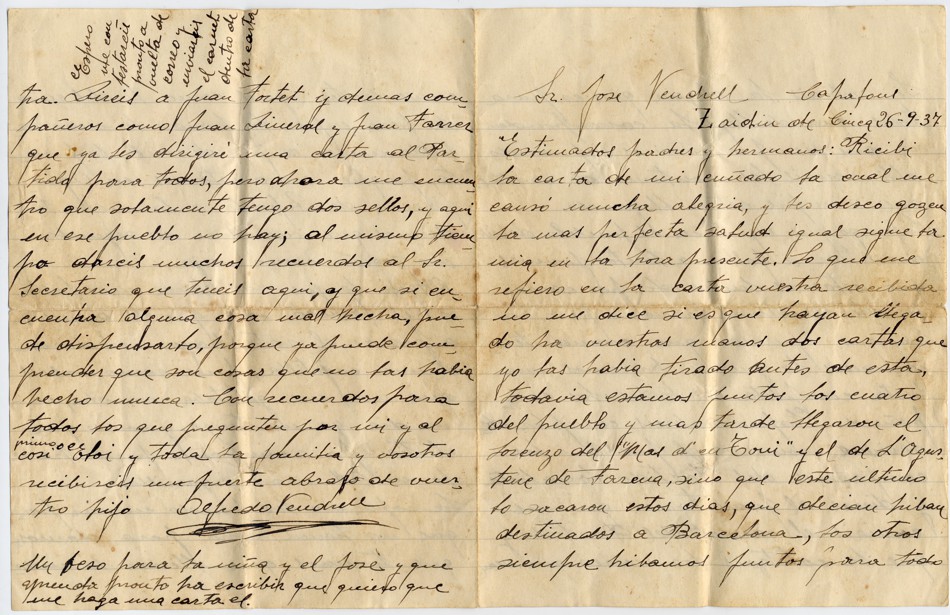 Sr. Jose Vendrell Capafons
Zaidin de Cinca 26-9-37
"Estimados padres y hermanos: Recibi
la carta de mi cuñado la cual me
causó mucha alegria, y les deseo gozen
la mas perfecta salud igual sigue la
mia en la hora presente. Lo que me
refiero en la carta vuestra recibida
no me dice si es que hayan llega-
do ha vuestras manos dos cartas que
yo las habia tirado antes de esta,
todavia estamos juntos los cuatro
del pueblo y mas tarde llegaron el
Lorenzo del "Mas d'en Toni" y el de L'Agus-
tene de Farena, sino que este ultimo
lo sacaron estos dias, que decian hiban
destinados a Barcelona, los otros
siempre hibamos juntos para todo
tra. Direis a Juan Tortet y demas com-
pañeros como Juan Llineral y Juan Farrer
que ya les dirigiré una carta al Par-
tido para todos, pero ahora me encuen-
tro que solamente tengo dos sellos, y aqui
en ese pueblo no hay; al mismo tiem-
po dareis muchos recuerdos al Sr.
Secretario que teneis aqui, y que si en-
cuentra alguna cosa mal hecha, pue-
de dispensarlo, porque ya puede com-
prender que son cosas que no las habia
hecho nunca. Con recuerdos para
todos los que pregunten por mi y al
primo o en
cosi Oloi y toda la familia y vosotros
recibireis un fuerte abrazo de vues-
tro hijo Alfredo Vendrell
Un beso para la niña y el José y que
aprenda pronto ha escribir que quiero que
me haga una carta el.
Espero
me con
testareis
pronto a
vuelta de
correo y
enviareis
el carnet
dentro de
la carta